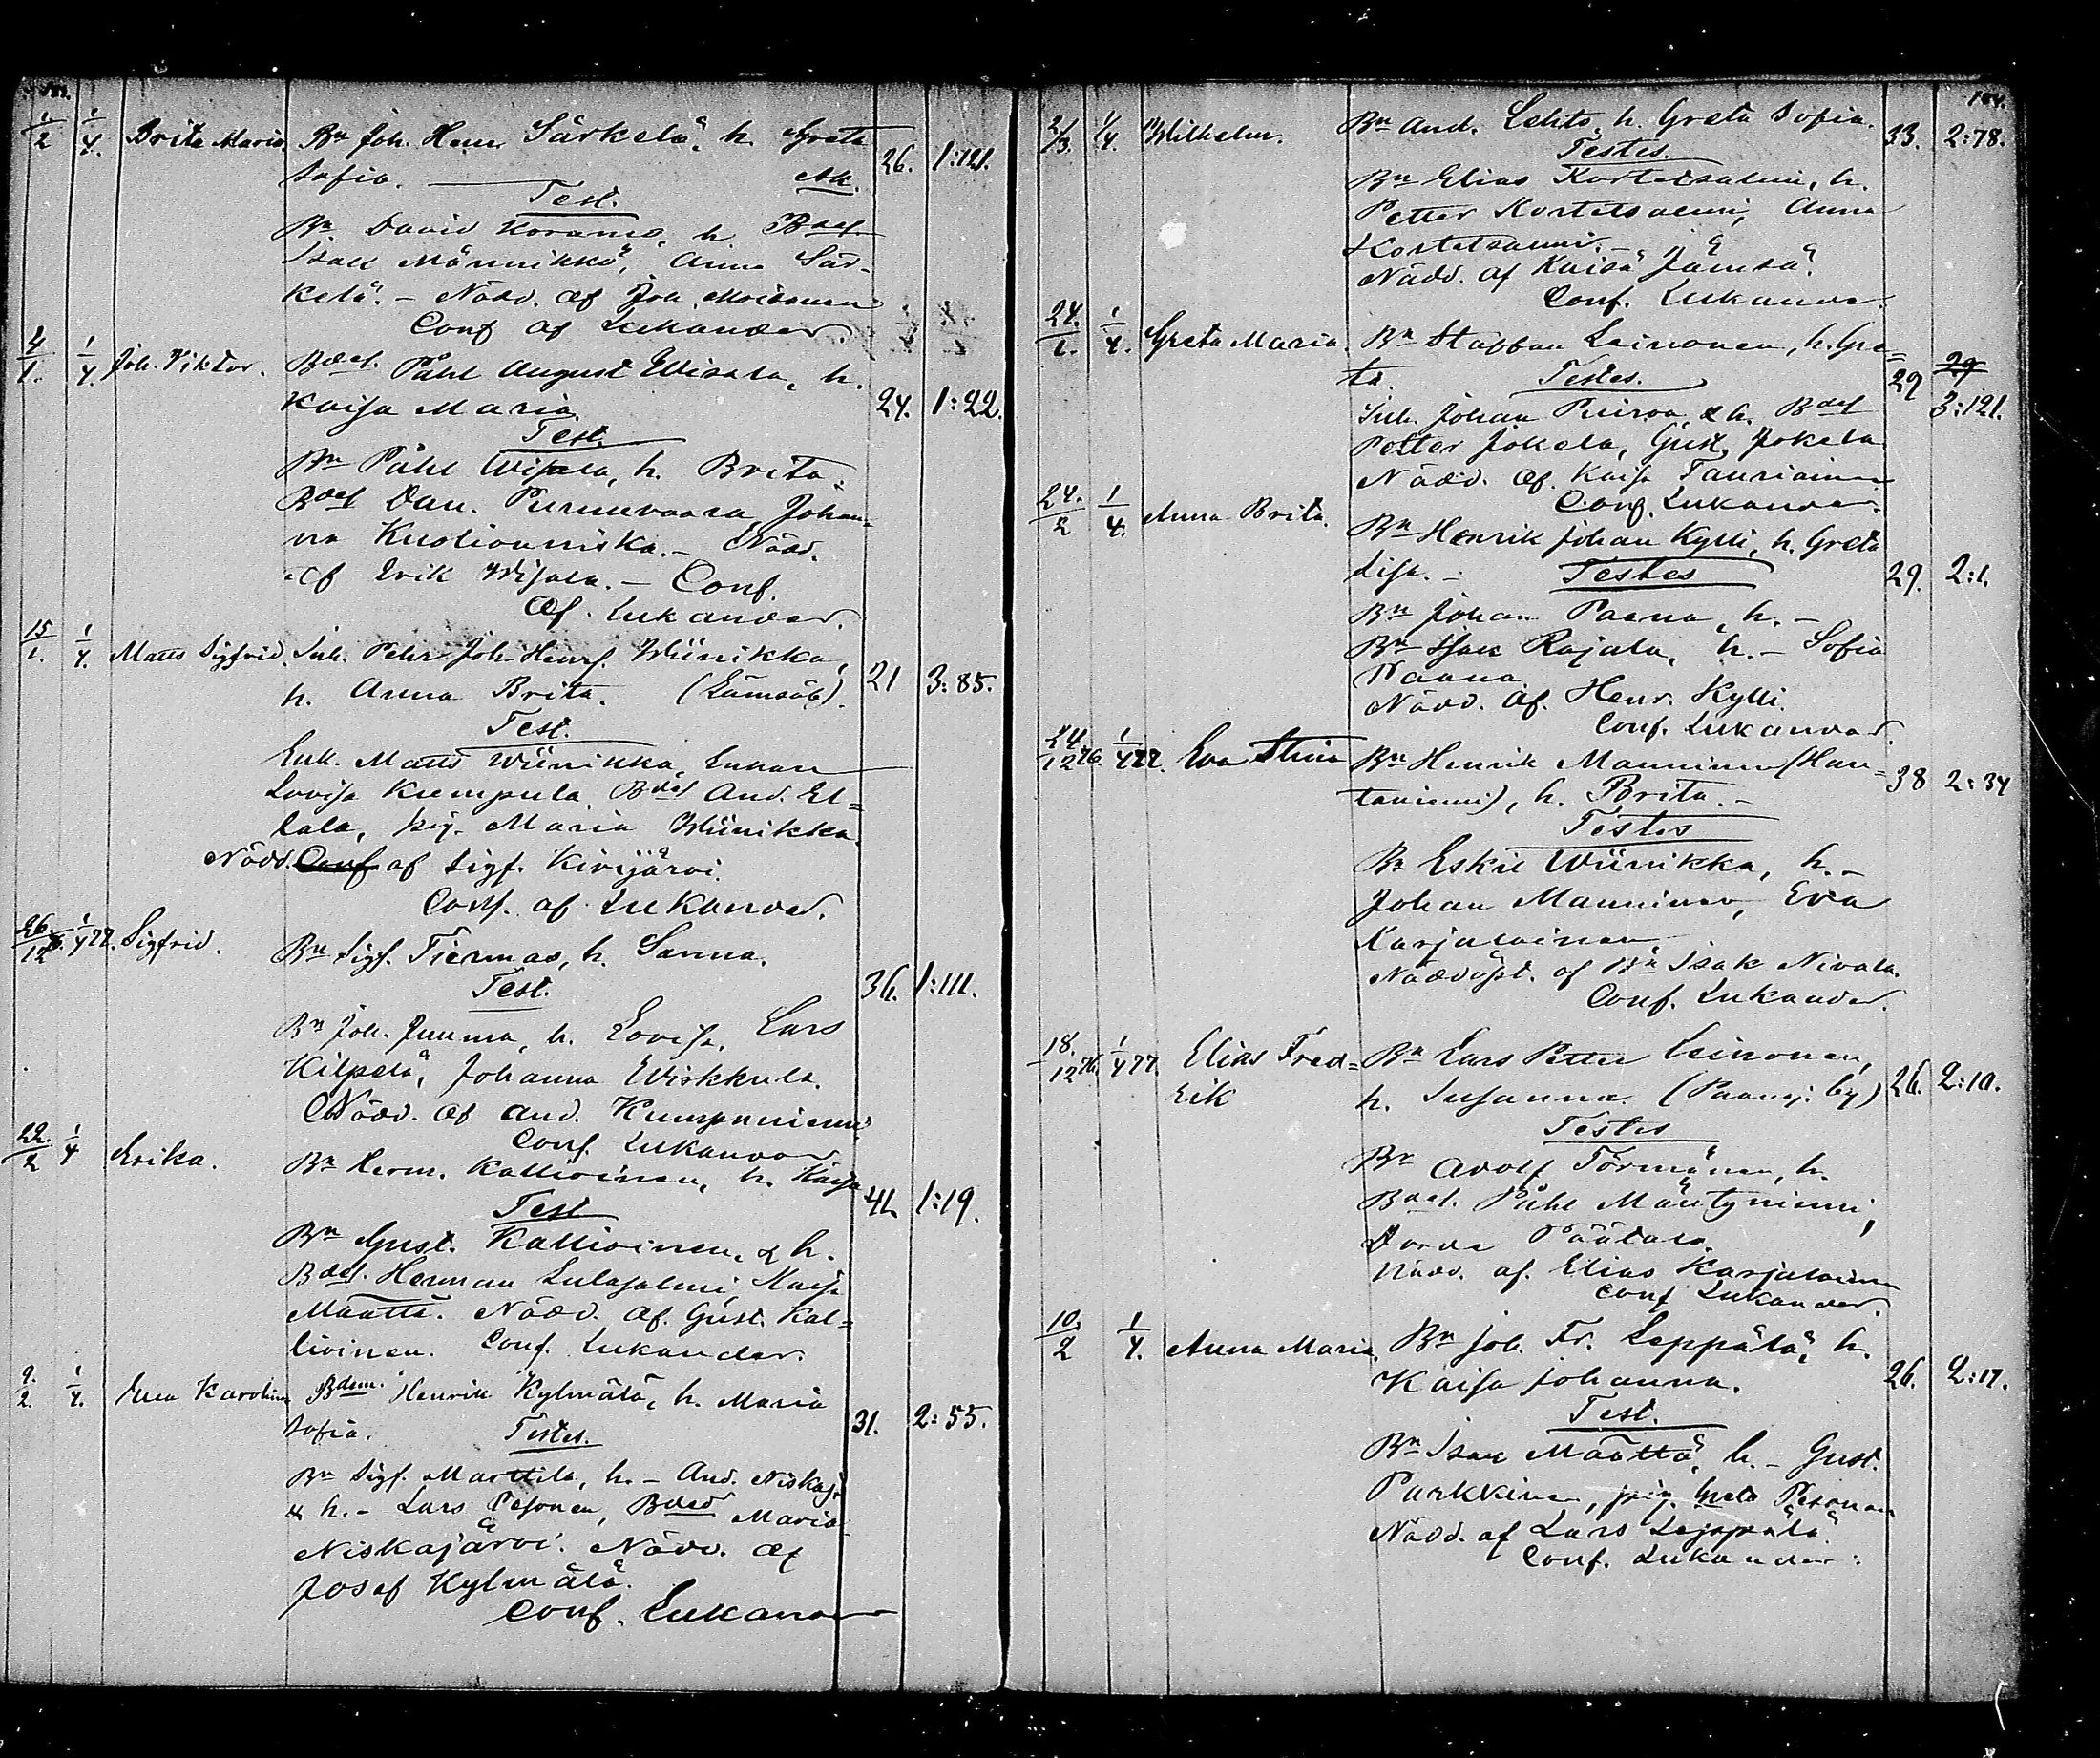 1/2 1/4. Brita Maria. Bn Joh. Henr. Särkelä, h. Greta 26. 1:121.
Sofia.
Test.
Bn David Koramo, h. Bdes
Isak Männikkö, Anna Sär-
kelä. - Nödd. af Joh. Moisanen
Conf af Lukander.
4/1. 1/4. Joh. Viktor. Bdes. Påhl August Wisala, h.
Kaisa Maria 24. 1:22.
Test.
Bn Påhl Wisala, h. Brita.
Bdes Dan. Purnuvaara Johan-
na Kuolioniska. - Nödd.
af Erik Wisala. - Conf.
af. Lukander.
15/1. 1/4. Matts Sigfrid. Inh. Pehr Joh. Henr. Wiinikka, 21 3:85.
h. Anna Brita. (Lämsäb).
Test.
Enk. Matts Wiinikka, Enkan
Lovisa Kumpula Bdes And. El=
lala, pig. Maria Wiinikka
Nödd. Conf af Sigf. Kivijärvi.
Conf. af Lukander.
26/12 76. 1/4 77. Sigfrid. Bn Sigf. Tiermas, h. Sanna. 36. 1:111.
Test.
Bn Joh. Juuma, h. Lovisa, Lars
Kilpelä, Johanna Wiskkula.
Nödd. af And. Kumpuniemi
Conf. Lukander
22./2 1/4 Erika. Bn Herm. Kallioinen, h. Kaisa 41. 1:19.
Test
Bn Gust. Kallioinen, & h.
Bdes. Herman Sulasalmi, Kaisa
Määttä. Nödd. af. Gust. Kal=
lioinen. Conf. Lukander.
9./2. 1/4. Eva Karolina Bdem. Henrik Kylmälä, h. Maria 31. 2:55.
Sofia. Testes.
Bn Sigf. Marttila, h. - And. Niskaj.
& h. - Lars Pesonen, Bdes Maria
Niskajärvi. Nödd. af
Josef Kylmälä.
Conf. Lukander
184.
2/3. 1/4. Wilhelm. Bn And. Lehto, h. Greta Sofia. 33. 2:78.
Testes.
Bn Elias Kortetsalmi, h.
Petter Kortetsalmi, Anna
Kortetsalmi. -
Nödd. af Kaisa Jämsä.
Conf. Lukander.
24./1. 1/4. Greta Maria. Bn Staffan Leinonen, h. Gre= 29 29
ta. Testes. 3:121.
Inh. Johan Puiroa, & h. Bdes
Petter Jokela, Gust. Jokela
Nödd. af. Kaisa Tauriainen
Conf. Lukander.
24./2 1/4. Anna Brita. Bn Henrik Johan Kylli, h. Greta
Lisa. - Testes 29. 2:1.
Bn Johan Paana, h. -
Bn Isak Rajala, h. - Sofia
Paana.
Nödd. af. Henr. Kylli.
Conf. Lukander.
24/12 76. 1/4 77. Eva Stina Bn Henrik Manninen (Hau= 38 2:34
taniemi), h. Brita. -
Testes
Bn Eskil Wiinikka, h. -
Johan Manninen, Eva
Karjalainen
Nöddöpt. af Bn Isak Nivala.
Conf. Lukander.
18./12 76. 1/4 77. Elias Fred= Bn Lars Petter Leinonen,
rik h. Susanna. (Paanaj: by) 26. 2:10.
Testes
Bn Adolf Törmänen, h.
Bdes. Påhl Mäntyniemi,
Dorde Päätalo.
Nödd. af. Elias Karjalainen
Conf Lukander.
10./2 1/4. Anna Maria. Bn Joh. Fr. Leppälä, h.
Kaisa Johanna. 26. 2:17.
Test.
Bn Isak Määttä, h. - Gust.
Parkkinen, pig. Greta Pesonen
Nödd. af Lars Leppälä
Conf. Lukander.